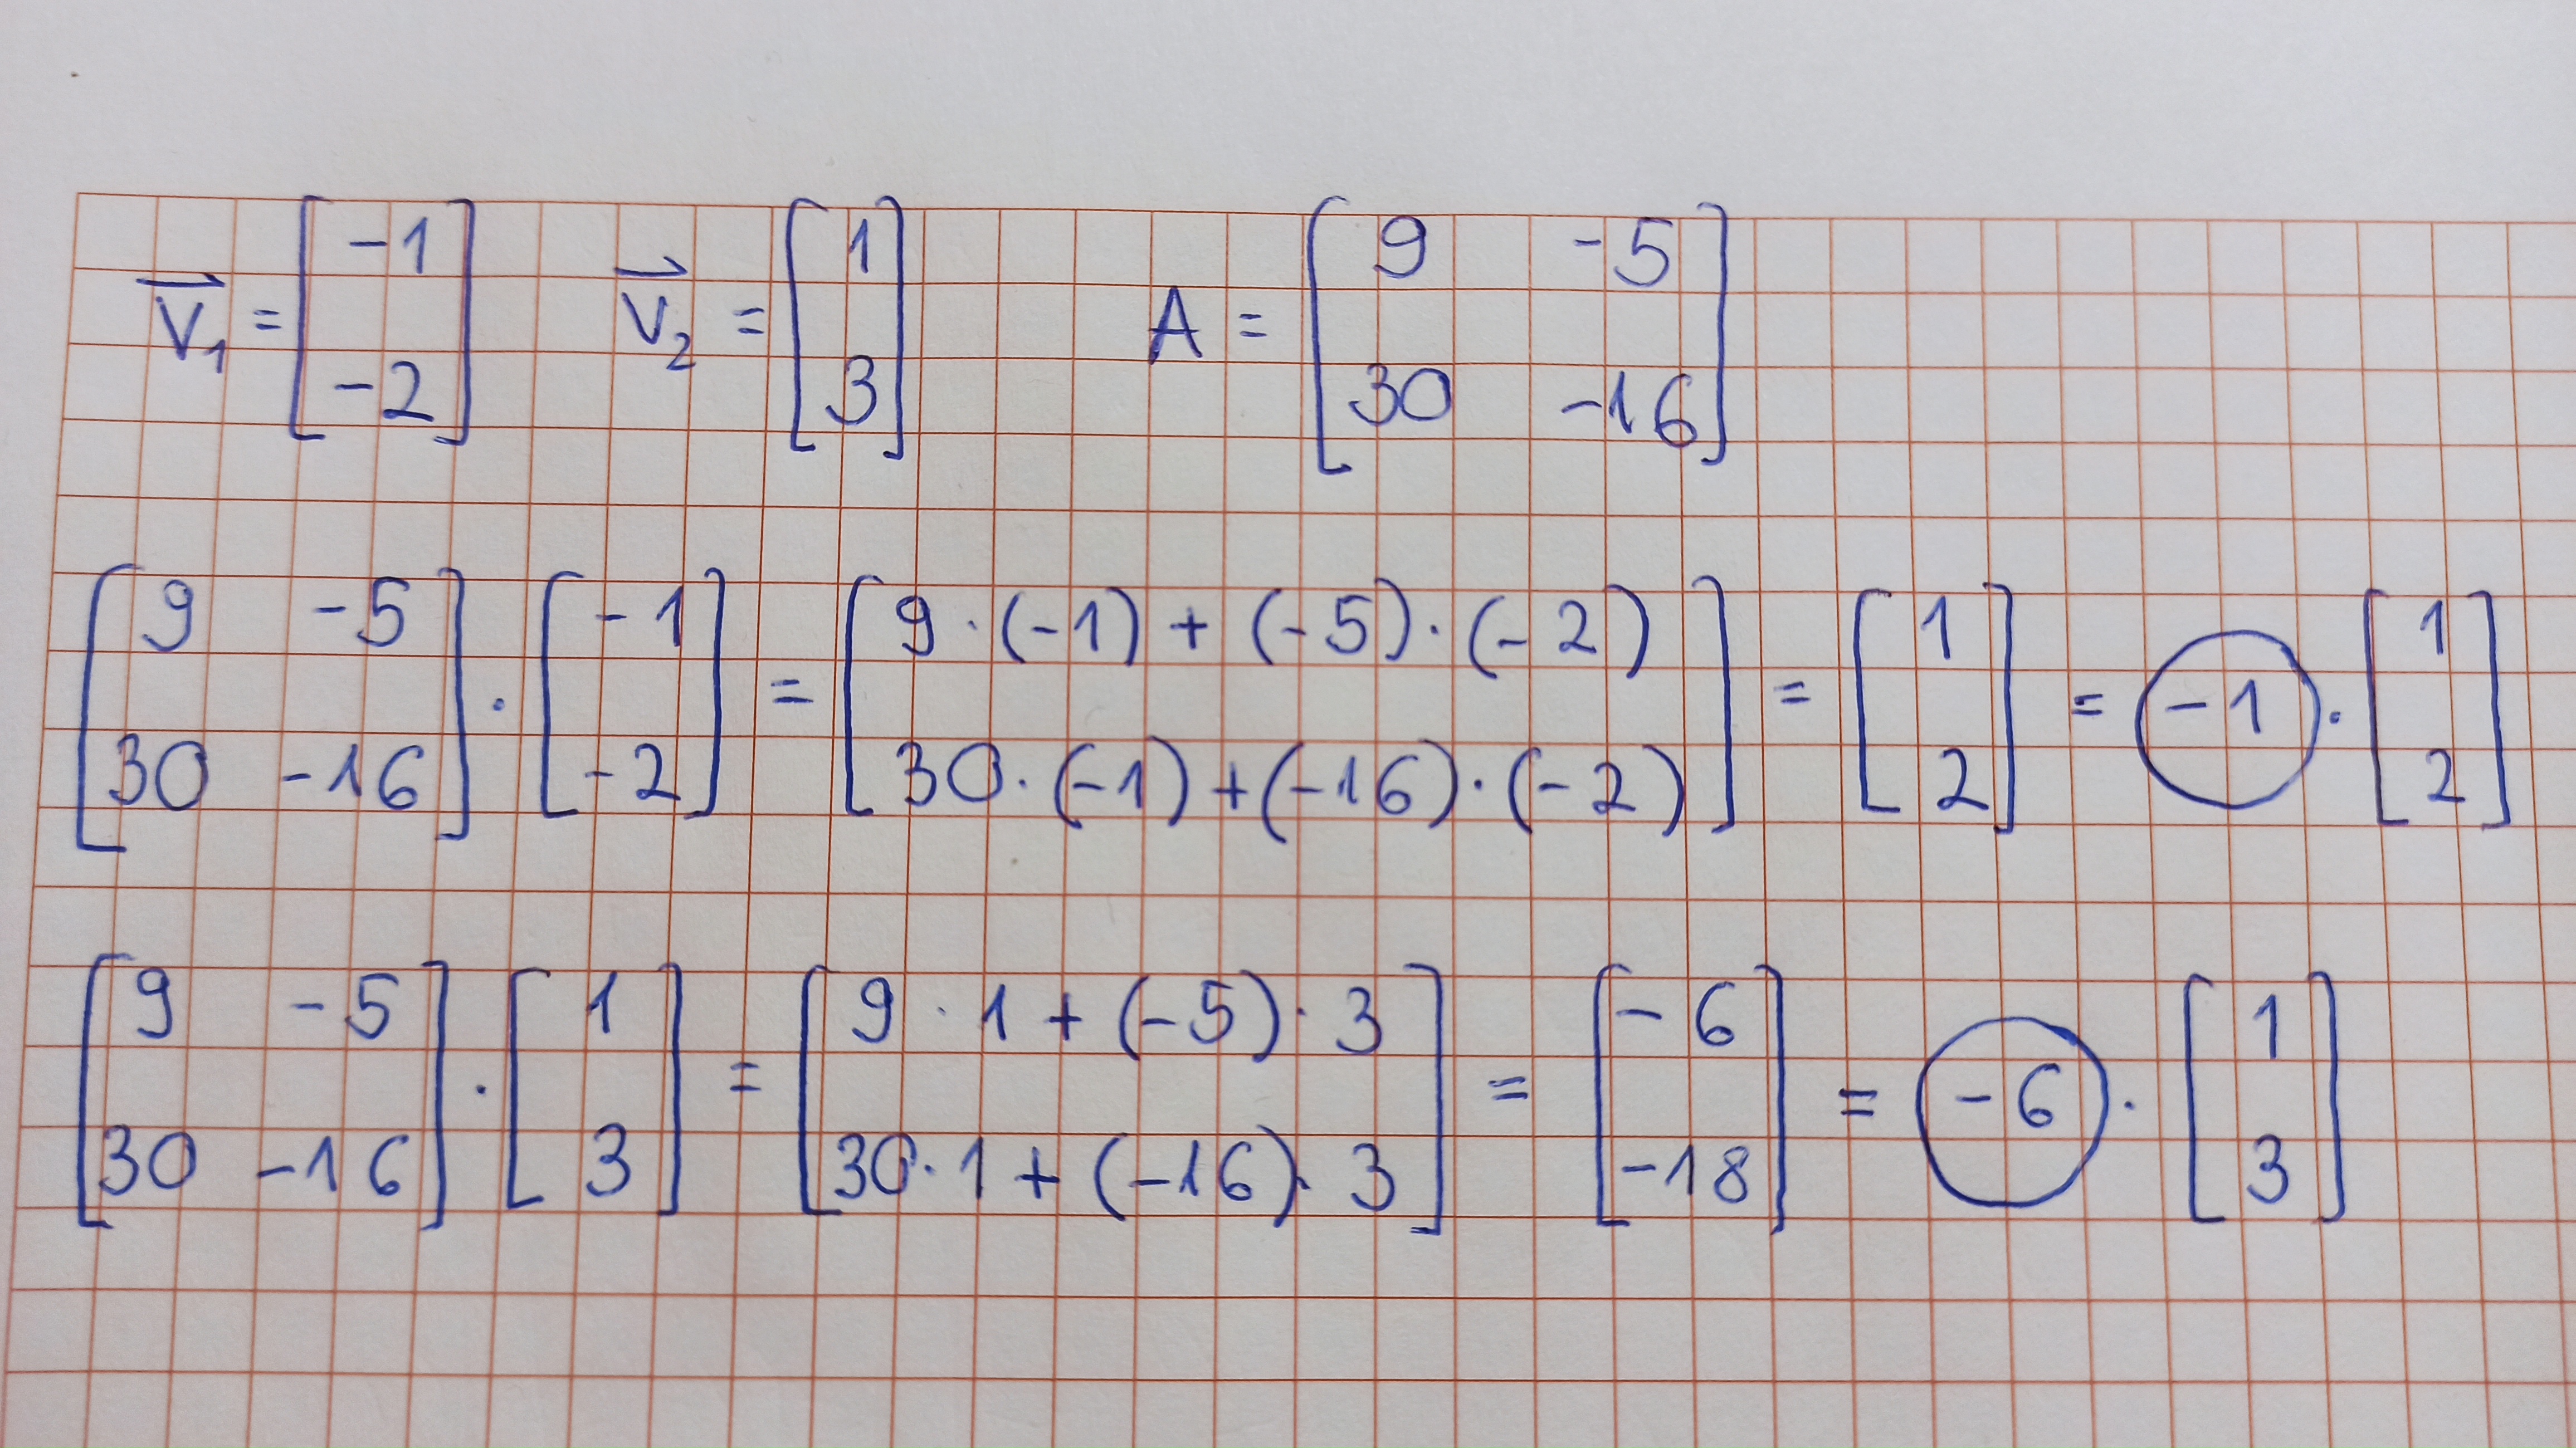 $\vec{V_1} = \begin{bmatrix} -1 \\ -2 \end{bmatrix} \quad \vec{V_2} = \begin{bmatrix} 1 \\ 3 \end{bmatrix} \quad A = \begin{bmatrix} 9 & -5 \\ 30 & -16 \end{bmatrix}$
$\begin{bmatrix} 9 & -5 \\ 30 & -16 \end{bmatrix} \cdot \begin{bmatrix} -1 \\ -2 \end{bmatrix} = \begin{bmatrix} 9 \cdot (-1) + (-5) \cdot (-2) \\ 30 \cdot (-1) + (-16) \cdot (-2) \end{bmatrix} = \begin{bmatrix} 1 \\ 2 \end{bmatrix} = -1 \cdot \begin{bmatrix} 1 \\ 2 \end{bmatrix}$
$\begin{bmatrix} 9 & -5 \\ 30 & -16 \end{bmatrix} \cdot \begin{bmatrix} 1 \\ 3 \end{bmatrix} = \begin{bmatrix} 9 \cdot 1 + (-5) \cdot 3 \\ 30 \cdot 1 + (-16) \cdot 3 \end{bmatrix} = \begin{bmatrix} -6 \\ -18 \end{bmatrix} = -6 \cdot \begin{bmatrix} 1 \\ 3 \end{bmatrix}$